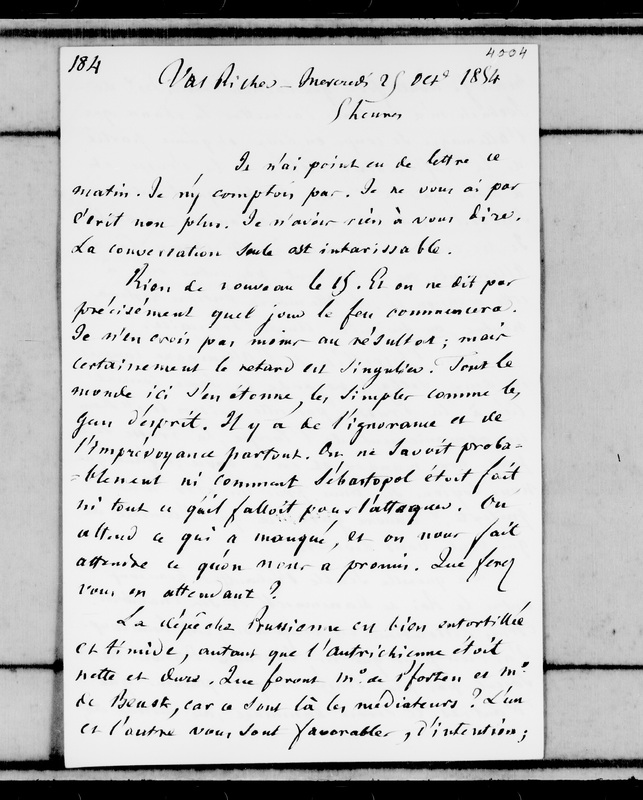 184
4004
Val Richer - Mercredi 25 Octe 1854
5 heures
Je n'ai point eu de lettre ce
matin. Je n'y comptois pas. Je ne vous ai pas
écrit non plus. Je n'avois rien à vous dire.
La conversation seule est intarissable.
Rien de nouveau le 15. Et on ne dit pas
précisément quel jour le feu commencera.
Je n'en crois pas moins au résultat ; mais
certainement le retard est singulier. Tout le
monde ici s'en étonne, les simples comme les
gens d'esprit. Il y a de l'ignorance et de
l'imprévoyance partout. On ne savoit proba-
-blement ni comment Sébastopol étoit fait
ni tout ce qu'il falloit pour l'attaquer. On
attend ce qui a manqué, et on nous fait
attendre ce qu'on nous a promis. Que ferez
vous en attendant ?
La dépêche Prussienne est bien entortillée
et timide, autant que l'autrichienne étoit
nette et dure. Que feront Mr. de Pfordten et Mr.
de Beust, car ce sont là les médiateurs ? L'un
et l'autre vous sont favorables, d'intention ;